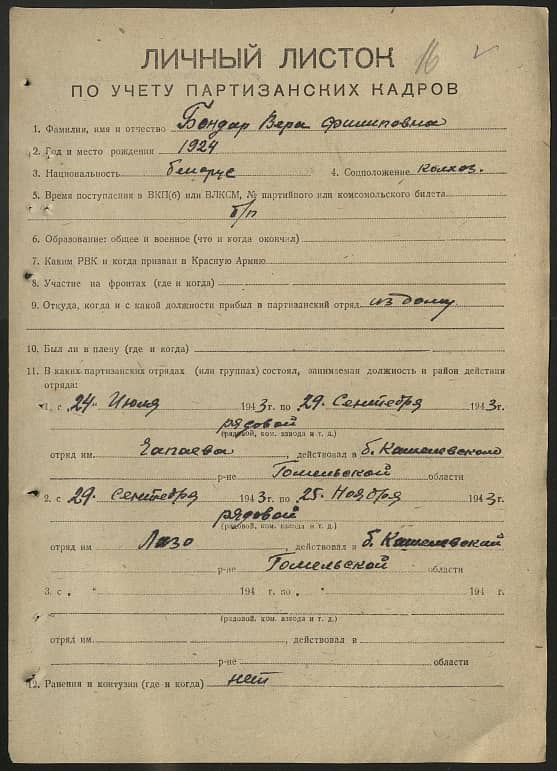 16
ЛИЧНЫЙ ЛИСТОК
ПО УЧЕТУ ПАРТИЗАНСКИХ КАДРОВ
1. Фамилия, имя и отчество Бондар Вера Филиповна
2. Год и место рождения 1924
3. Национальность белорус 4. Соцположение колхоз.
5. Время поступления в ВКП(б) или ВЛКСМ, № партийного или комсомольского билета
б/п
6. Образование: общее и военное (что и когда окончил)
7. Каким РВК и когда призван в Красную Армию
8. Участие на фронтах (где и когда)
9. Откуда, когда и с какой должности прибыл в партизанский отряд из дому
10. Был ли в плену (где и когда)
11. В каких партизанских отрядах (или группах) состоял, занимаемая должность и район действия
отряда:
1. с 24 Июля 1943 г. по 29. Сентебря 1943 г.
рядовой
(рядовой, ком. взвода и т. д.)
отряд им. Чапаева, действовал в б. Кашелевском
р-не Гомельской области
2. с 29. Сентебря 1943 г. по 25. Ноября 1943 г.
рядовой
(рядовой, ком. взвода и т. д.)
отряд им Лазо, действовал в б. Кашелевский
р-не Гомельской области
3. с " 194 г. по " 194 г.
(рядовой, ком. взвода и т. д.)
отряд им., действовал в
р-не области
12. Ранения и контузии (где и когда) нет